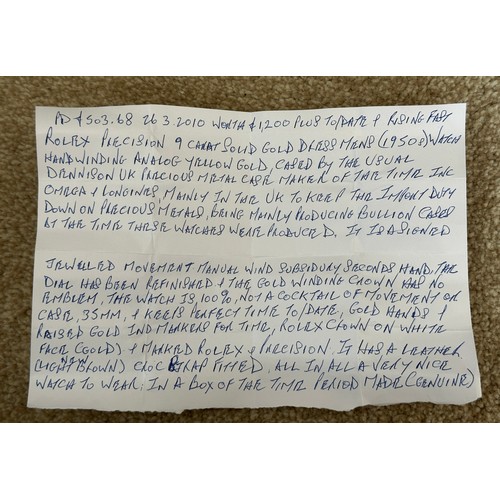 PD £503.68 26 3 2010 WORTH £1,200 PLUS TO/DATE & RISING FAST
ROLEX PRECISION 9 CARAT SOLID GOLD DRESS MENS (1950s) WATCH
HANDWINDING ANALOG YELLOW GOLD, CASED BY THE USUAL
DENNISON UK PRECIOUS METAL CASE MAKER OF THE TIME INC
OMEGA & LONGINES, MAINLY IN THE UK TO KEEP THE IMPORT DUTY
DOWN ON PRECIOUS METALS, BEING MAINLY PRODUCING BULLION CASES
AT THE TIME THESE WATCHES WERE PRODUCED. IT IS A SIGNED
JEWELLED MOVEMENT MANUAL WIND SUBSIDUARY SECONDS HAND, THE
DIAL HAS BEEN REFINISHED & THE GOLD WINDING CROWN HAS NO
EMBLEM, THE WATCH IS, 100%, NOT A COCKTAIL OF MOVEMENT OR
CASE, 35MM, & KEEPS PERFECT TIME TO/DATE, GOLD HANDS &
RAISED GOLD IND MARKERS FOR TIME, ROLEX CROWN ON WHITE
FACE (GOLD) & MARKED ROLEX & PRECISION. IT HAS A LEATHER
(LIGHT NEW BROWN) CROC STRAP FITTED, ALL IN ALL A VERY NICE
WATCH TO WEAR. IN A BOX OF THE TIME PERIOD MADE (GENUINE)